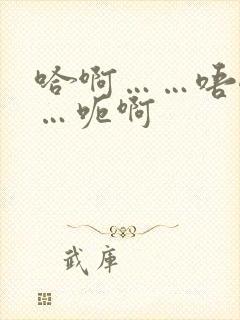 哈啊……唔…
…呃啊
武庫